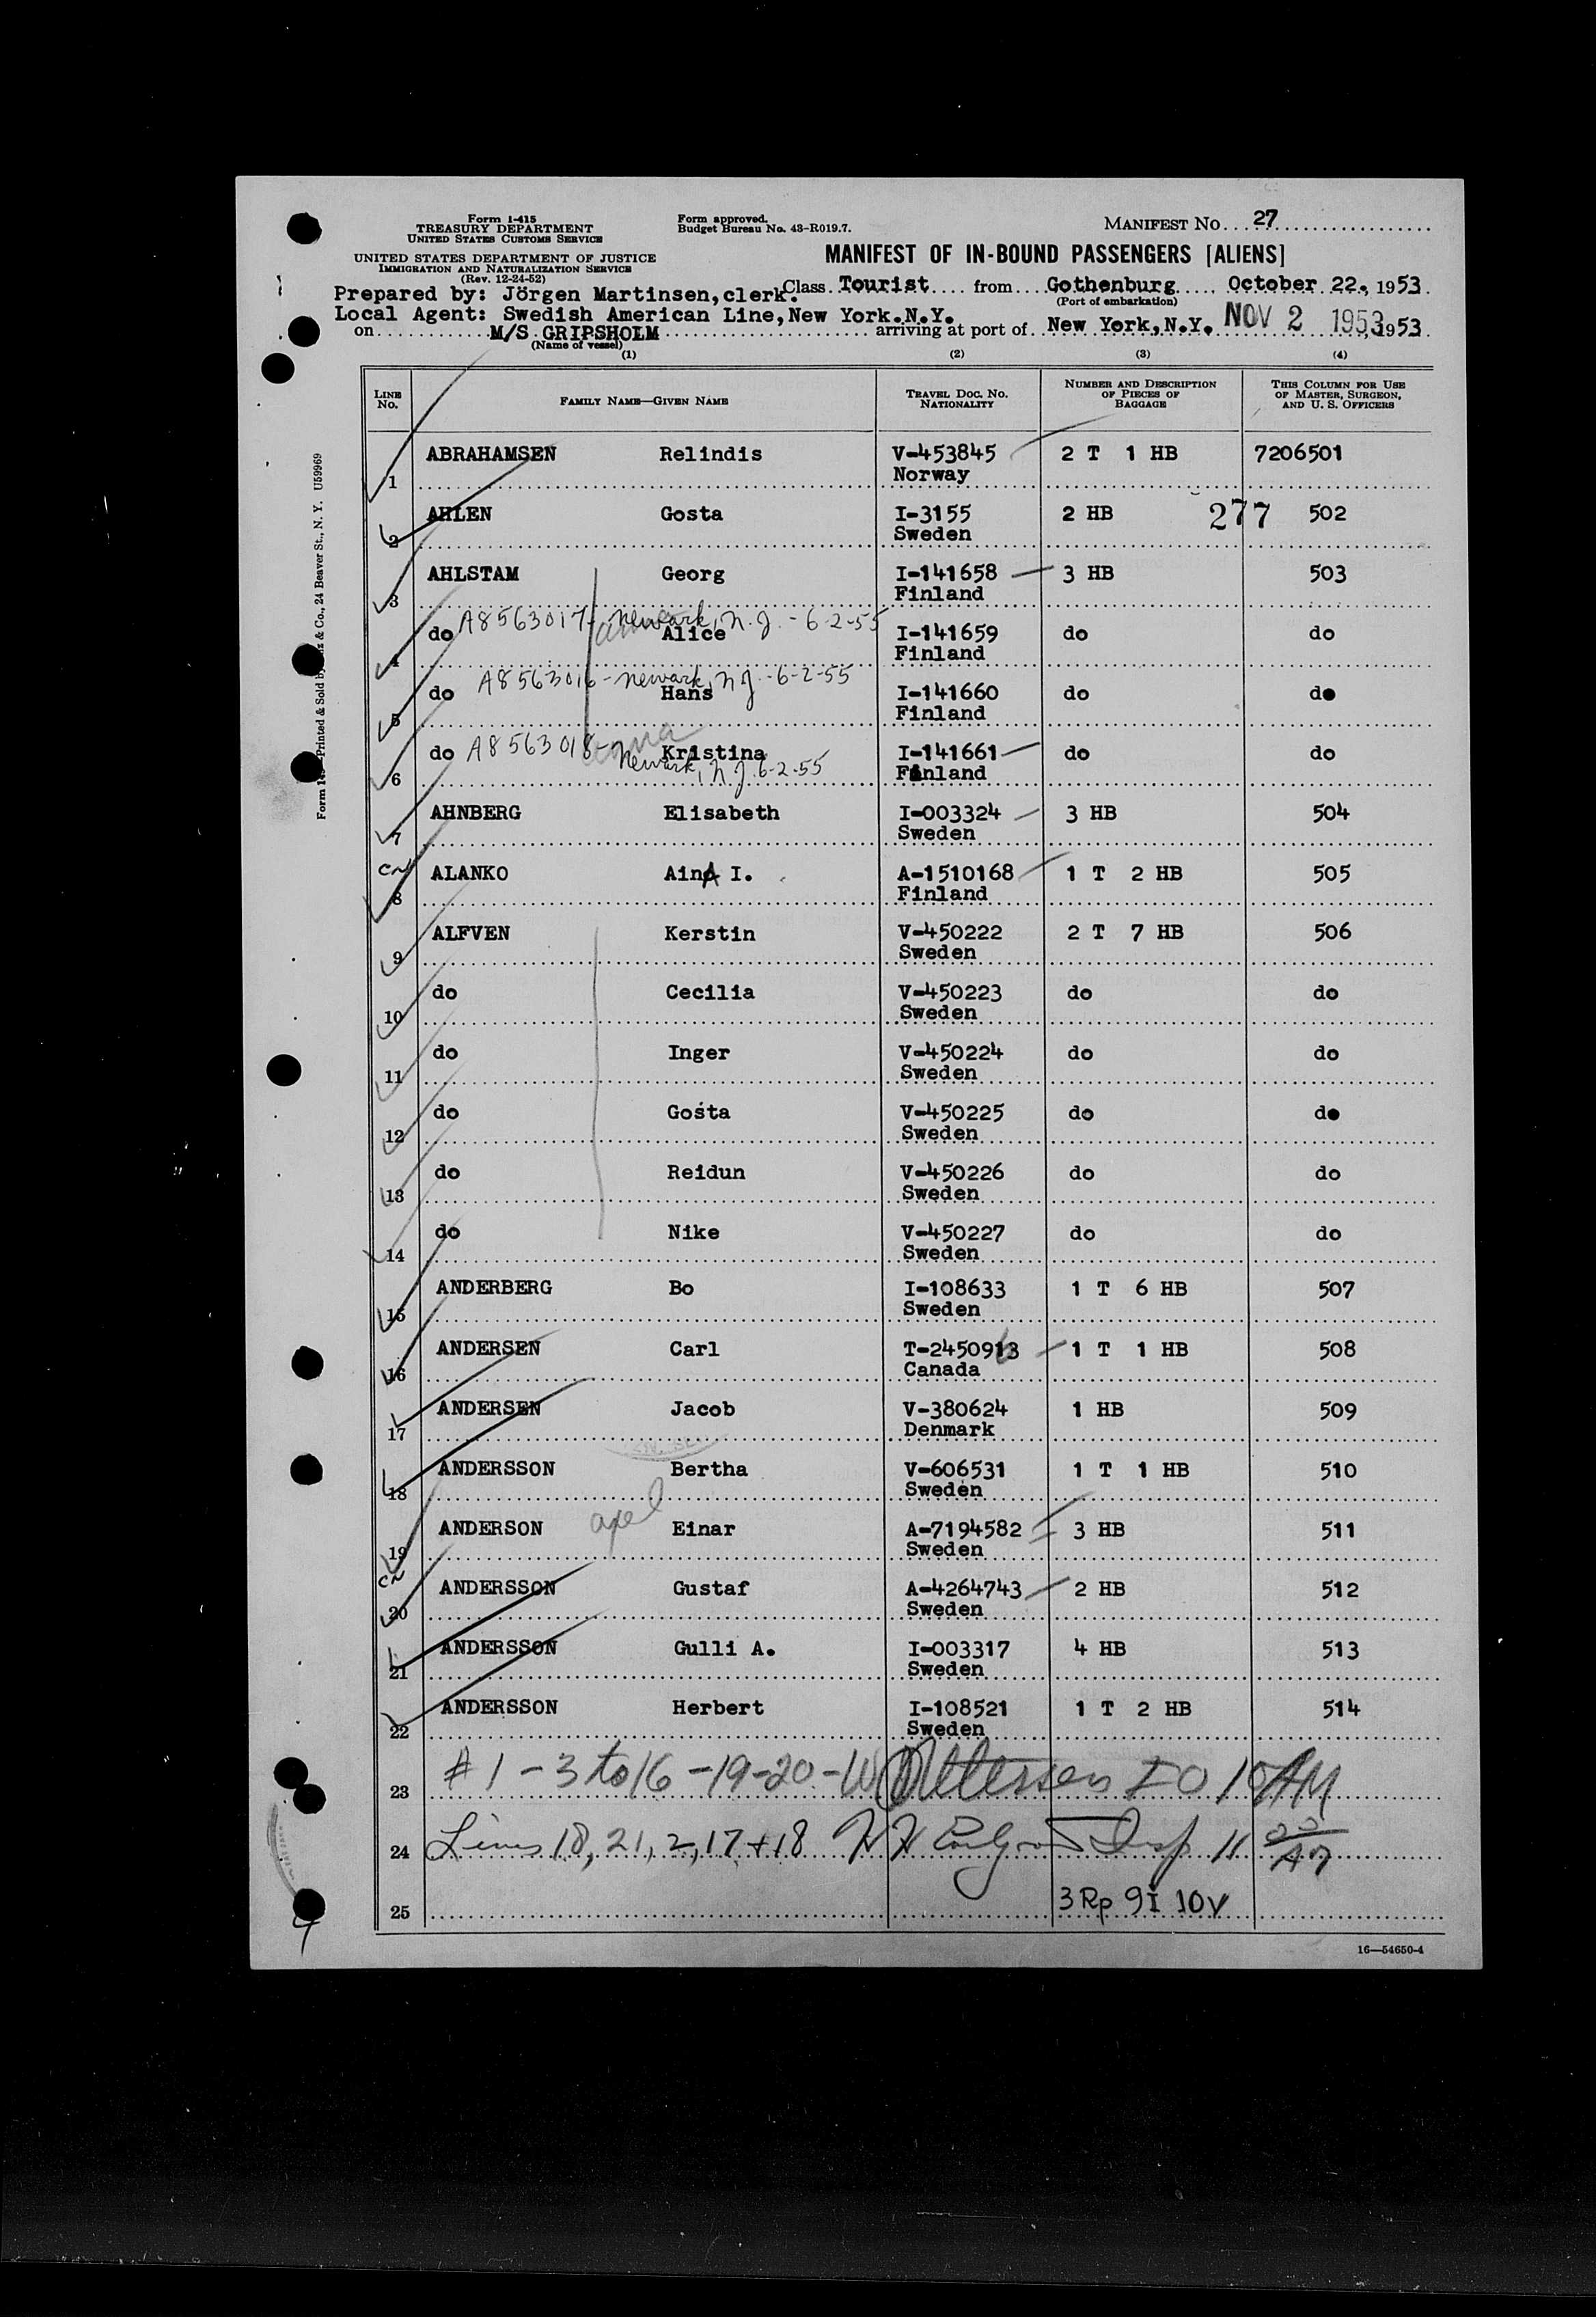 Form I-415
TREASURY DEPARTMENT
UNITED STATES CUSTOMS SERVICE
UNITED STATES DEPARTMENT OF JUSTICE
IMMIGRATION AND NATURALIZATION SERVICE
(Rev. 12-24-52)
Form approved.
Budget Bureau No. 43-R019.7.
MANIFEST NO. 27
MANIFEST OF IN-BOUND PASSENGERS [ALIENS]
Prepared by: Jörgen Martinsen, clerk. Class Tourist from Gothenburg October 22., 1953
(Port of embarkation)
Local Agent: Swedish American Line, New York.N.Y.
on M/S GRIPSHOLM arriving at port of New York, N.Y. NOV 2 1953, 1953
(Name of vessel)
(1) (2) (3) (4)
LINE NO. FAMILY NAME—GIVEN NAME TRAVEL DOC. NO. NATIONALITY NUMBER AND DESCRIPTION OF PIECES OF BAGGAGE THIS COLUMN FOR USE OF MASTER, SURGEON, AND U. S. OFFICERS
1 ABRAHAMSEN Relindis V-453845 2 T 1 HB 7206501
Norway
2 AHLEN Gosta I-3155 2 HB 277 502
Sweden
3 AHLSTAM Georg I-141658 3 HB 503
Finland
A8563017- Newark, N.J. - 6-2-55
4 do Alice I-141659 do do
Finland
A8563016 - Newark, N J - 6-2-55
5 do Hans I-141660 do do
Finland
A8563018 - Newark, N J 6-2-55
6 do Kristina I-141661 do do
Finland
7 AHNBERG Elisabeth I-003324 3 HB 504
Sweden
8 ALANKO AinA I. A-1510168 1 T 2 HB 505
Finland
9 ALFVEN Kerstin V-450222 2 T 7 HB 506
Sweden
10 do Cecilia V-450223 do do
Sweden
11 do Inger V-450224 do do
Sweden
12 do Gosta V-450225 do do
Sweden
13 do Reidun V-450226 do do
Sweden
14 do Nike V-450227 do do
Sweden
15 ANDERBERG Bo I-108633 1 T 6 HB 507
Sweden
16 ANDERSEN Carl T-2450913 1 T 1 HB 508
Canada
17 ANDERSEN Jacob V-380624 1 HB 509
Denmark
18 ANDERSSON Bertha V-606531 1 T 1 HB 510
Sweden
19 ANDERSON axel Einar A-7194582 3 HB 511
Sweden
20 ANDERSSON Gustaf A-4264743 2 HB 512
Sweden
21 ANDERSSON Gulli A. I-003317 4 HB 513
Sweden
22 ANDERSSON Herbert I-108521 1 T 2 HB 514
Sweden
23 # 1 - 3 to 16 - 19-20- IO 10 AM
24 Lines 18, 21, 2, 17 + 18 Insp 11
25 3 Rp 9I 10V
16—54650-4
24 Beaver St., N. Y. U59969